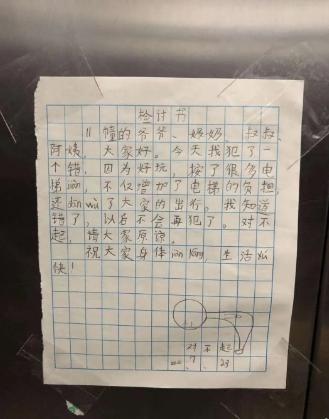 检讨书
11幢的爷爷、奶奶、叔叔、
阿姨，大家好。今天我犯了一
个错，因为好玩，按了很多电
梯iàn，不仅增护了电梯的负担，
还dān wù了大家的出行。我知道
错了，以后不会再犯了。对不
起，请大家原谅。
祝大家身体jiàn kāng，生活yú
快！
对不起